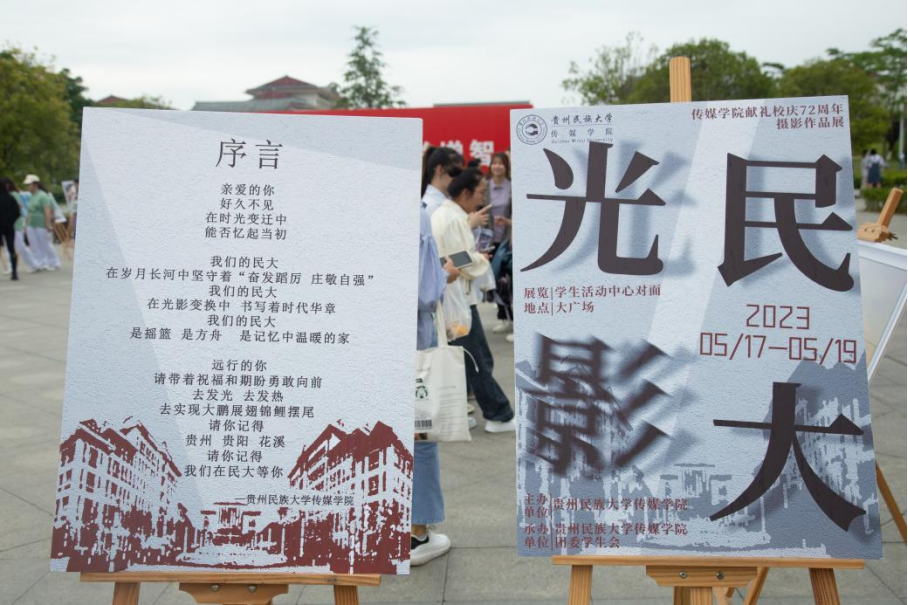 序言
亲爱的你
好久不见
在时光变迁中
能否忆起当初
我们的民大
在岁月长河中坚守着“奋发蹈厉 庄敬自强”
我们的民大
在光影变换中 书写着时代华章
我们的民大
是摇篮 是方舟 是记忆中温暖的家
远行的你
请带着祝福和期盼勇敢向前
去发光 去发热
去实现大鹏展翅锦鲤摆尾
请你记得
贵州 贵阳 花溪
请你记得
我们在民大等你
—贵州民族大学传媒学院
贵州民族大学
传媒学院
传媒学院献礼校庆72周年
摄影作品展
民大
光影
展览|学生活动中心对面
地点|大广场
2023
05/17—05/19
主办|贵州民族大学传媒学院
单位
承办|贵州民族大学传媒学院
单位|团委学生会
智